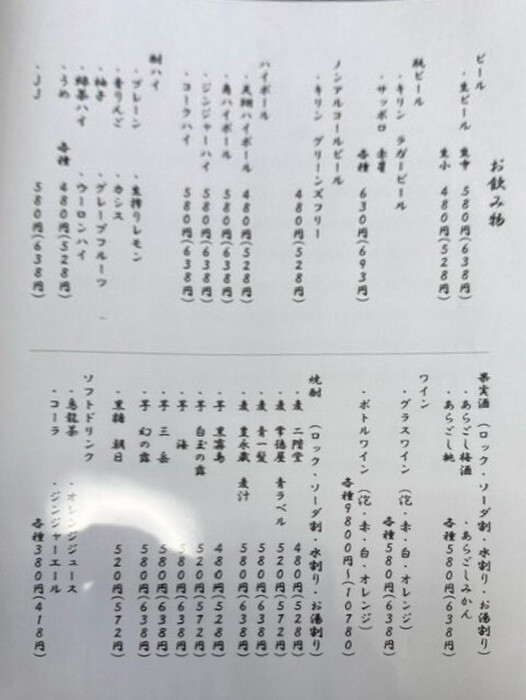 お飲み物
ビール
・生ビール 生中 580円(638円)
生小 480円(528円)
瓶ビール
・キリン ラガービール
・サッポロ 赤星
各種 630円(693円)
ノンアルコールビール
・キリン グリーンズフリー
480円(528円)
ハイボール
・天翔ハイボール 480円(528円)
・角ハイボール 580円(638円)
・ジンジャーハイ 580円(638円)
・コーラハイ 580円(638円)
酎ハイ
・プレーン ・生搾りレモン
・青りんご ・カシス
・柚子 ・グレープフルーツ
・緑茶ハイ ・ウーロンハイ
・うめ 各種 480円(528円)
・JJ 580円(638円)
果実酒 (ロック・ソーダ割・水割り・お湯割り)
・あらごし梅酒 ・あらごしみかん
・あらごし桃 各種580円(638円)
ワイン
・グラスワイン (泡・赤・白・オレンジ)
各種580円(638円)
・ボトルワイン (泡・赤・白・オレンジ)
各種9800円~(10780)
焼酎 (ロック・ソーダ割・水割り・お湯割り)
・麦 二階堂 480円(528円)
・麦 常徳屋 青ラベル 520円(572円)
・麦 青一髪 580円(638円)
・麦 豊永蔵 麦汁 580円(638円)
・芋 黒霧島 480円(528円)
・芋 白玉の露 520円(572円)
・芋 海 580円(638円)
・芋 三岳 580円(638円)
・芋 幻の露 580円(638円)
・黒糖 朝日 520円(572円)
ソフトドリンク
・烏龍茶 ・オレンジジュース
・コーラ ・ジンジャーエール
各種380円(418円)